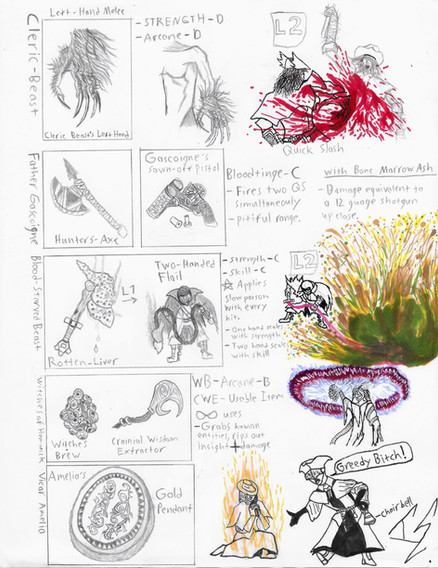 Cleric-Beast
Left-Hand Melee
Cleric Beast's Left Hand
-STRENGTH-D
-Arcane-D
L2
Quick Slash
Father Gascoigne
Hunters-Axe
Gascoigne's
sawn-off Pistol
Bloodtinge-C
-Fires two QS
simultaneously
-pitiful range.
with Bone Marrow Ash
-Damage equivalent to
a 12 guage shotgun
up close.
Blood-Starved Beast
Rotten-Liver
L1
Two-Handed
Flail
-strength-C
-Skill-C
☆ Applies
slow poison
with every
hit.
-One hand scales
with strength
-Two hand scales
with skill
L2
Witches of Hemwick
Witches
Brew
Cranial Wisdom
Extractor
WB-Arcane-B
CWE-Usable Item
∞ uses
-Grabs human
entities, rips out
insight + damage
Vicar Amelia
Amelia's
Gold
Pendant
Greedy Bitch!
choir bell